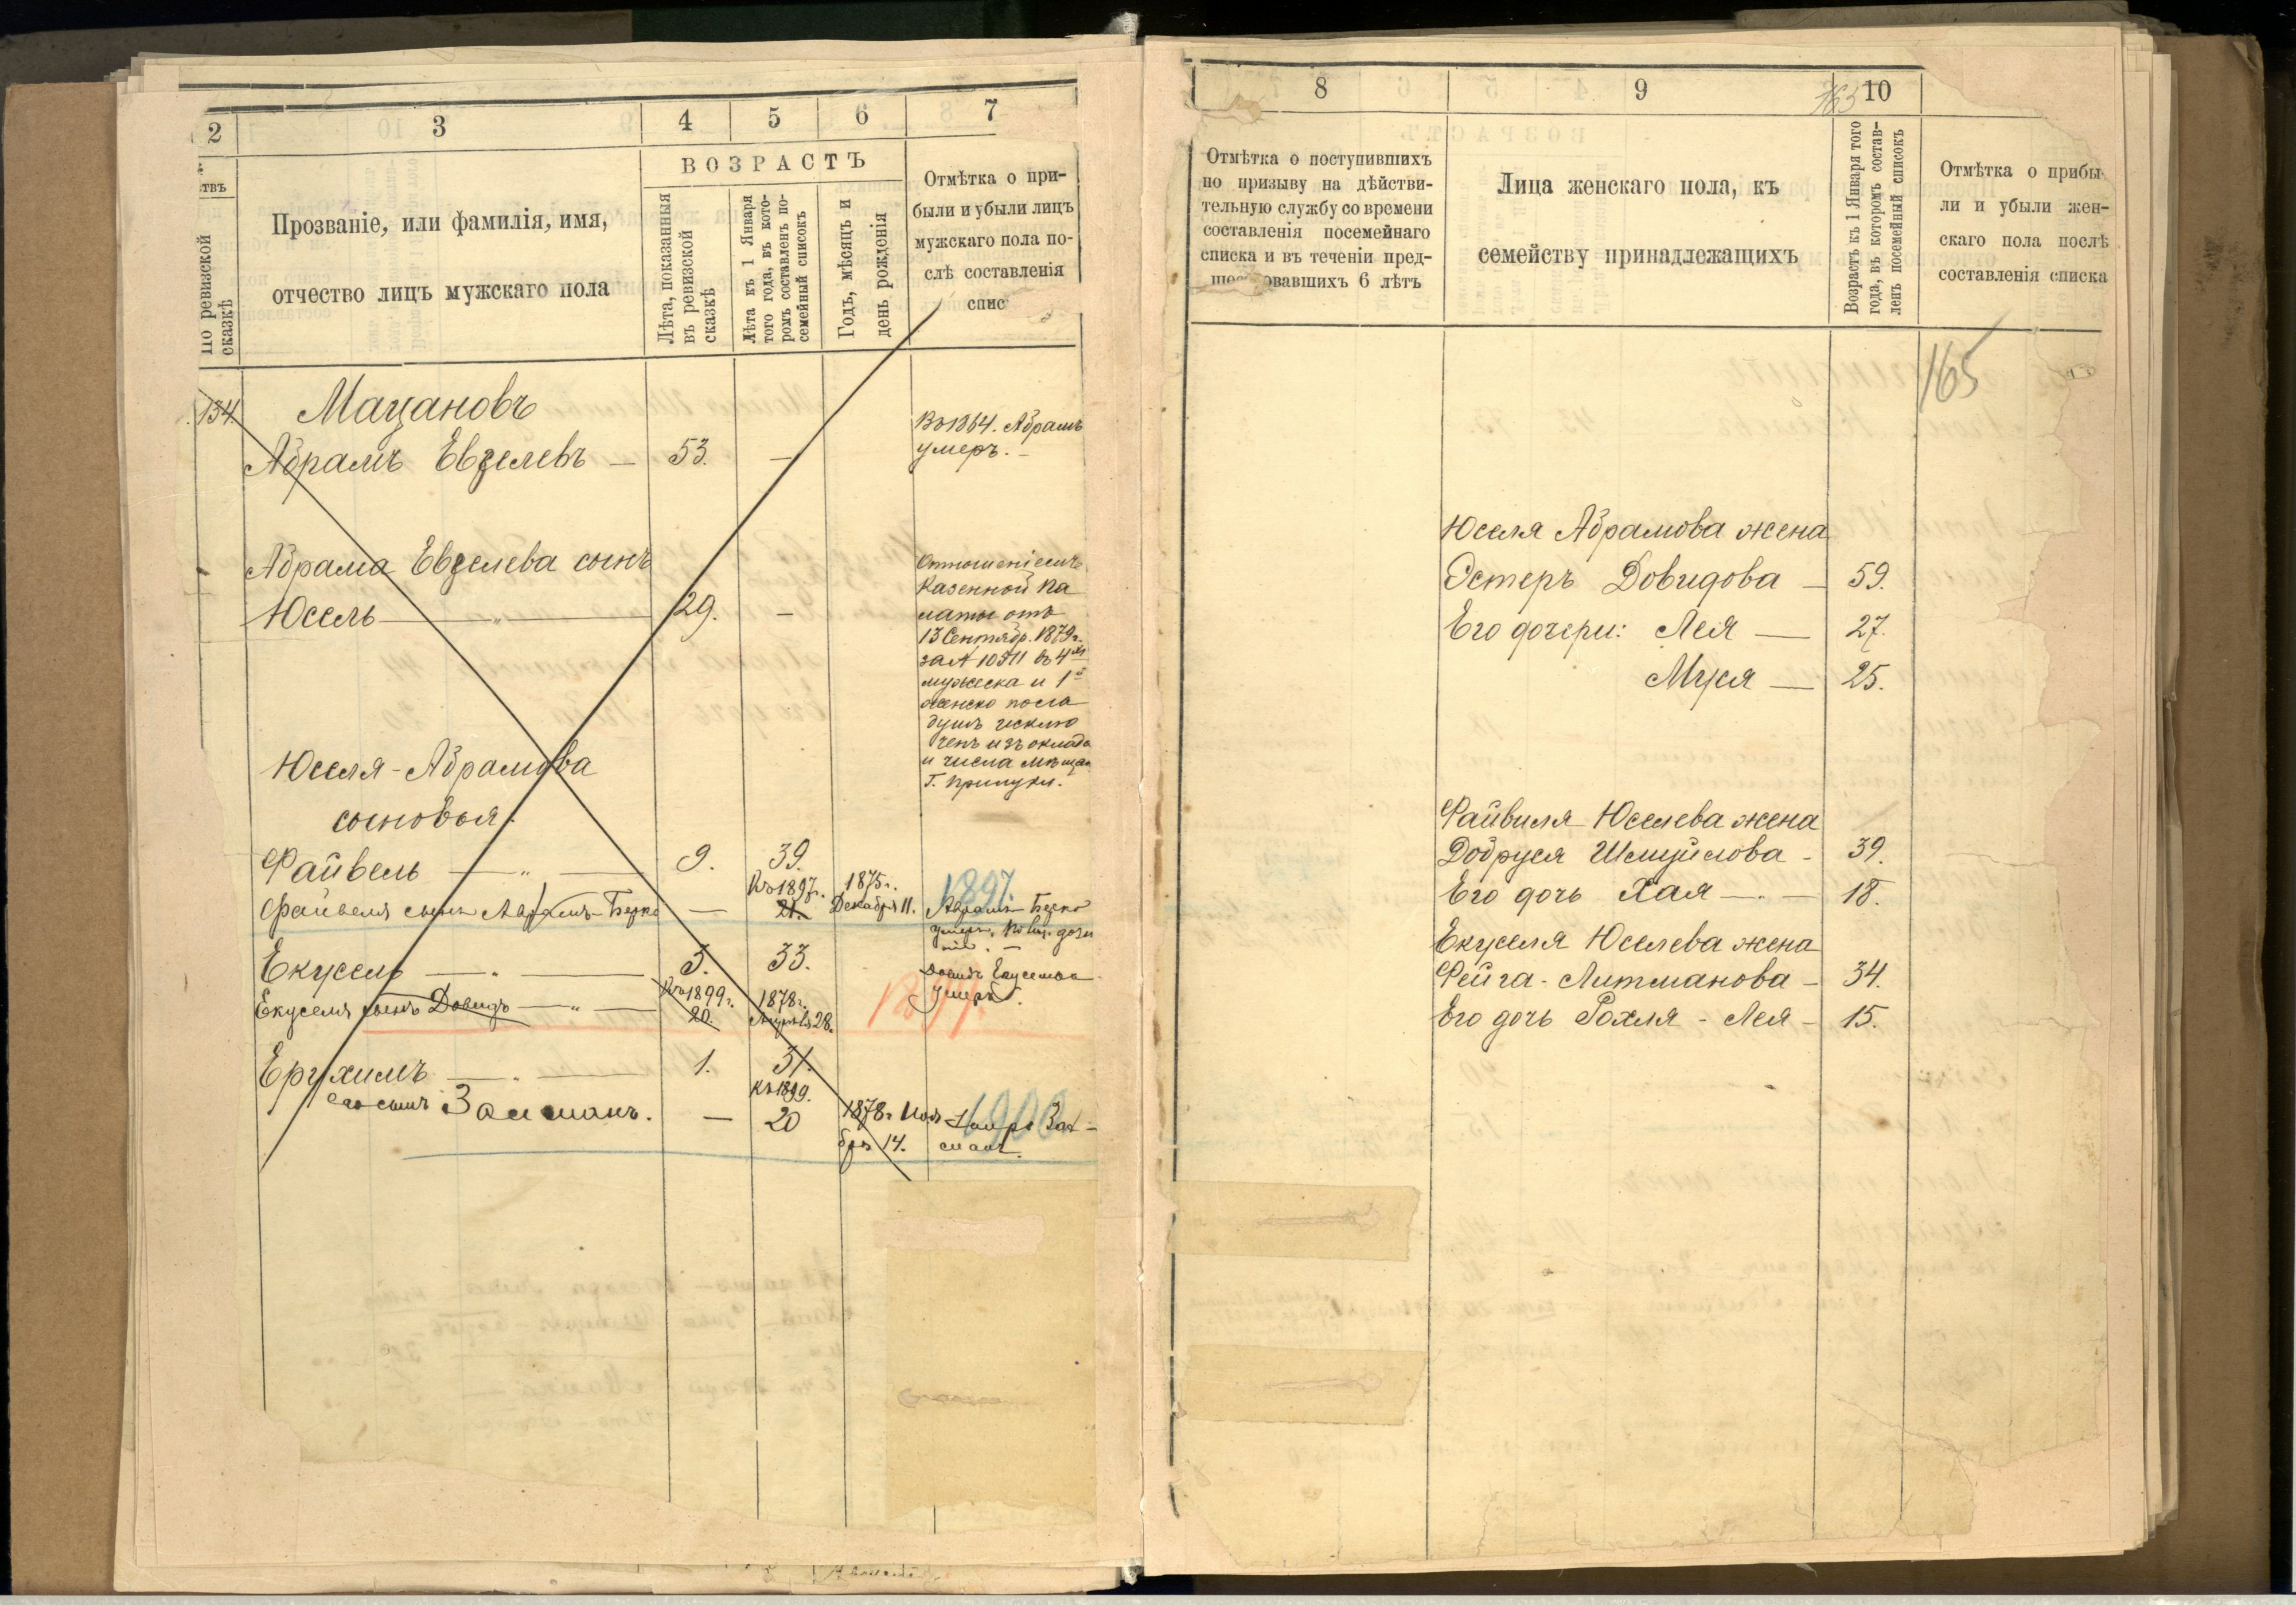 2
3
4
5
6
7
ствъ
По ревизской
сказкѣ
Прозваніе, или фамилія, имя,
отчество лицъ мужскаго пола
ВОЗРАСТЪ
Лѣта, показанныя
въ ревизской
сказкѣ
Лѣта къ 1 Января
того года, въ кото-
ромъ составленъ по-
семейный списокъ
Годъ, мѣсяцъ и
день рожденія
Отмѣтка о при-
были и убыли лицъ
мужскаго пола по-
слѣ составленія
спис
134.
Мацановъ
Абрамъ Евзелевъ — 53. —
Въ 1864. Абрамъ
умеръ. —
Абрама Евзелева сынъ
Юсель — " — 29. —
Отношеніемъ
Казенной Па
латы отъ
13 Сентябр. 1879 г.
за № 10511 въ 4хъ
мужеска и 1й
женско пола
душъ исклю
ченъ изъ оклада
и числа мѣщан
Г. Прилуки.
Юселя-Абрамова
сыновья:
Файвель — " — 9. 39.
Файвеля сынъ Аврамъ-Берко —
Къ 1897 г.
21.
1875 г.
Декабря 11.
1897.
Аврамъ Берко
умеръ.
Екусель — " — 3. 33.
Екуселя сынъ Довидъ — " —
Къ 1899 г.
20.
1878 г.
28.
1899.
Довидъ Екуселевъ
умеръ.
Ерухимъ — " — 1. 31.
его сынъ Залманъ. —
Къ 1899.
20
1878 г. Ноя
бря 14.
1900
Умеръ Зал-
манъ.
8
9
10
163
Отмѣтка о поступившихъ
по призыву на дѣйстви-
тельную службу со времени
составленія посемейнаго
списка и въ теченіи пред-
шествовавшихъ 6 лѣтъ
Лица женскаго пола, къ
семейству принадлежащихъ
Возрастъ къ 1 Января того
года, въ которомъ состав-
ленъ посемейный списокъ
Отмѣтка о прибы-
ли и убыли жен-
скаго пола послѣ
составленія списка
165
Юселя Абрамова жена
Эстеръ Довидова — 59.
Его дочери: Лея — 27.
Муся — 25.
Файвиля Юселева жена
Добруся Шмуйлова - 39.
Его дочь Хая — . — 18.
Екуселя Юселева жена
Фейга-Литманова - 34.
Его дочь Рохля-Лея - 15.